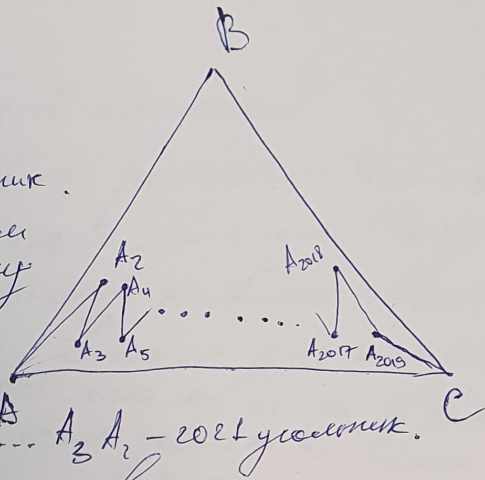 B
ник.
A₂
A₄
A₂₀₁₈
A₃
A₅
A₂₀₁₇
A₂₀₁₉
A
C
... A₃ A₂ – 2021 угольник.